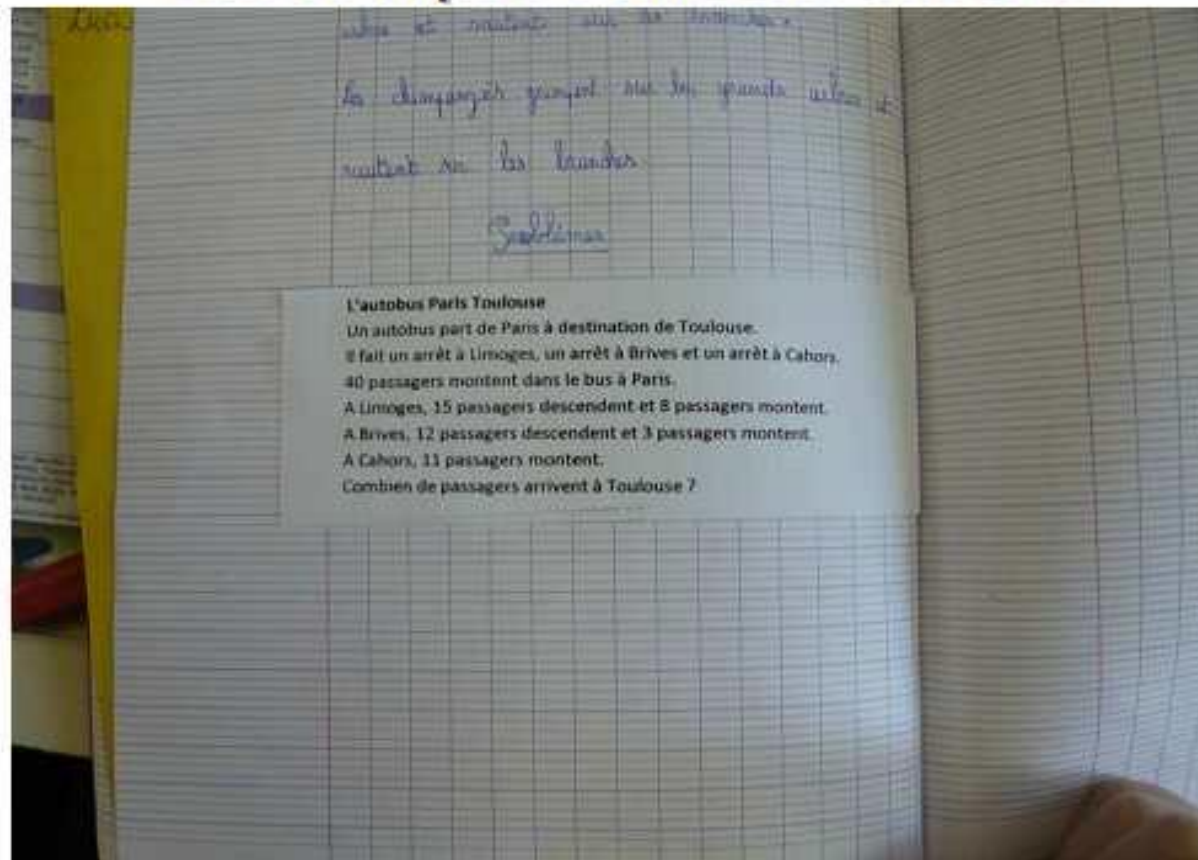 et sautent sur les branches.
Les chimpanzés grimpent sur les grands arbres et
sautent sur les branches
Problèmes
L'autobus Paris Toulouse
Un autobus part de Paris à destination de Toulouse.
Il fait un arrêt à Limoges, un arrêt à Brives et un arrêt à Cahors.
40 passagers montent dans le bus à Paris.
A Limoges, 15 passagers descendent et 8 passagers montent.
A Brives, 12 passagers descendent et 3 passagers montent.
A Cahors, 11 passagers montent.
Combien de passagers arrivent à Toulouse ?